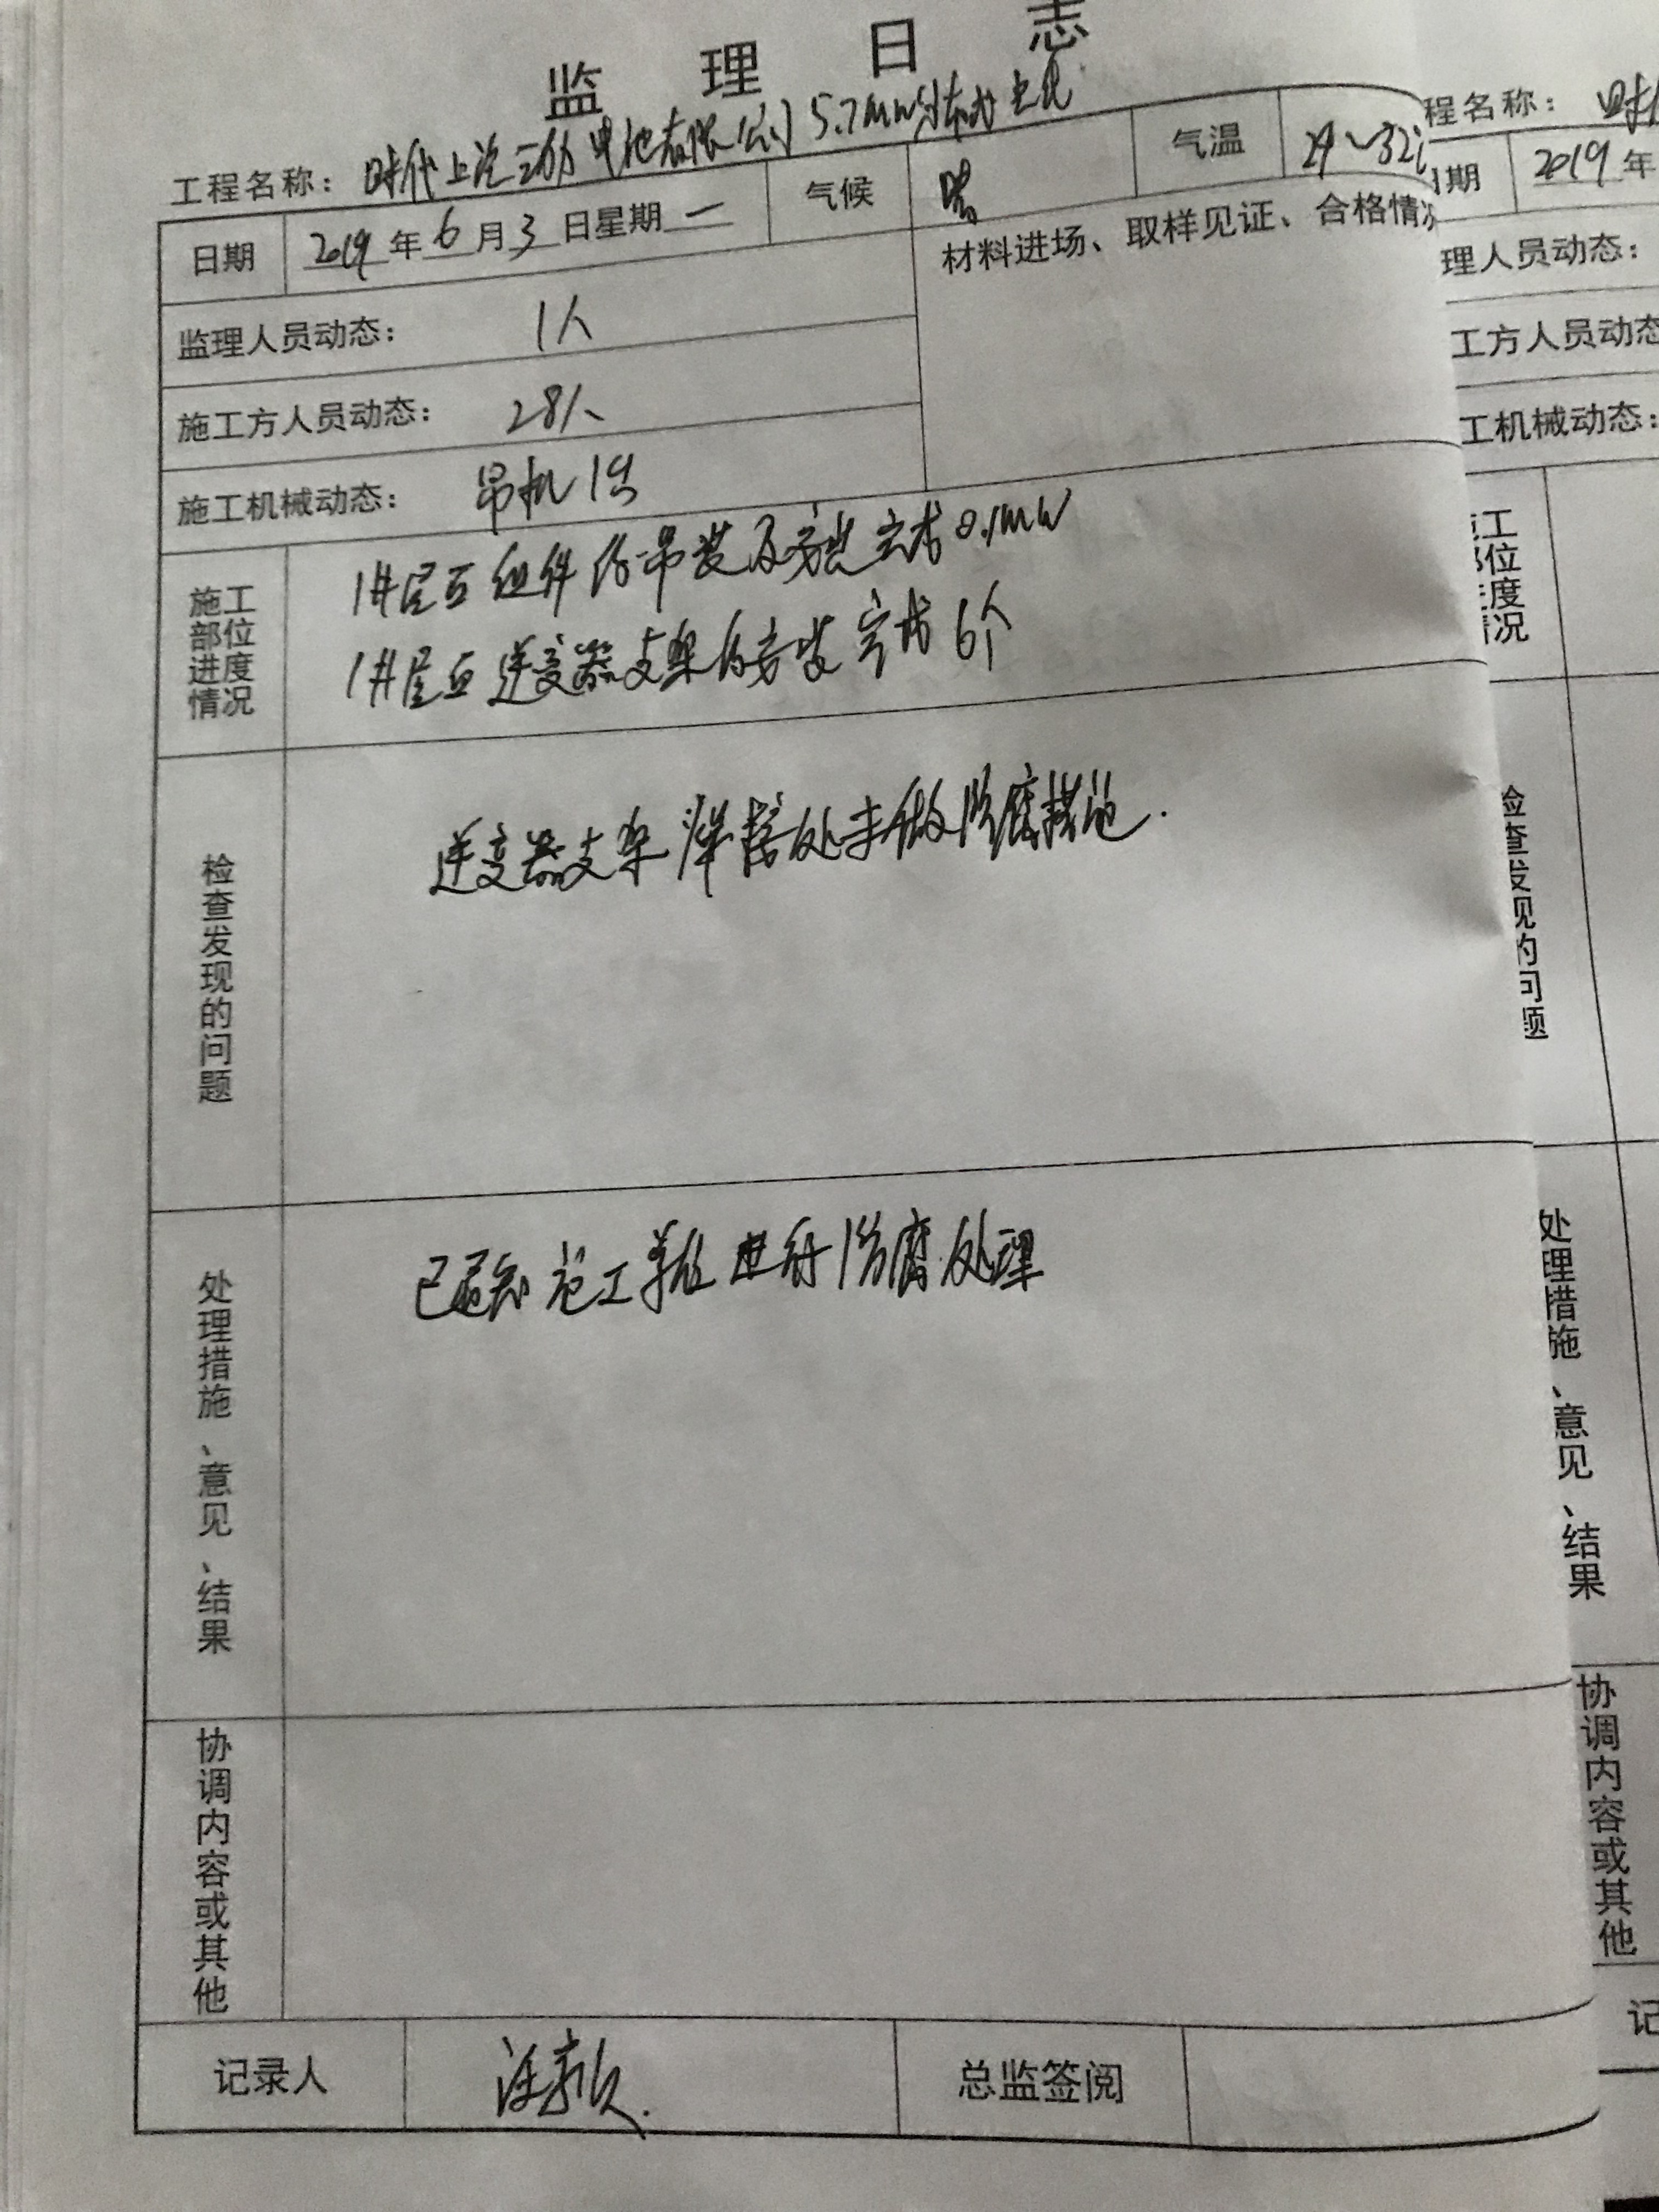 监理日志
工程名称：时代上汽动力电池有限公司5.7MW分布式光伏
日期 2019年6月3日星期一 气候 晴 气温 24~32
监理人员动态： 1人
材料进场、取样见证、合格情况
施工方人员动态： 28人
施工机械动态： 吊机1台
施工部位进度情况
1#屋面组件的吊装及安装完成0.1MW
1#屋面逆变器支架的安装完成6个
检查发现的问题
逆变器支架焊接处未做防腐措施.
处理措施、意见、结果
已通知施工单位进行防腐处理
协调内容或其他
记录人 总监签阅
程名称： 时
期 2019年
理人员动态：
工方人员动态
工机械动态：
工
位
度
况
检查发现的问题
处理措施、意见、结果
协调内容或其他
记